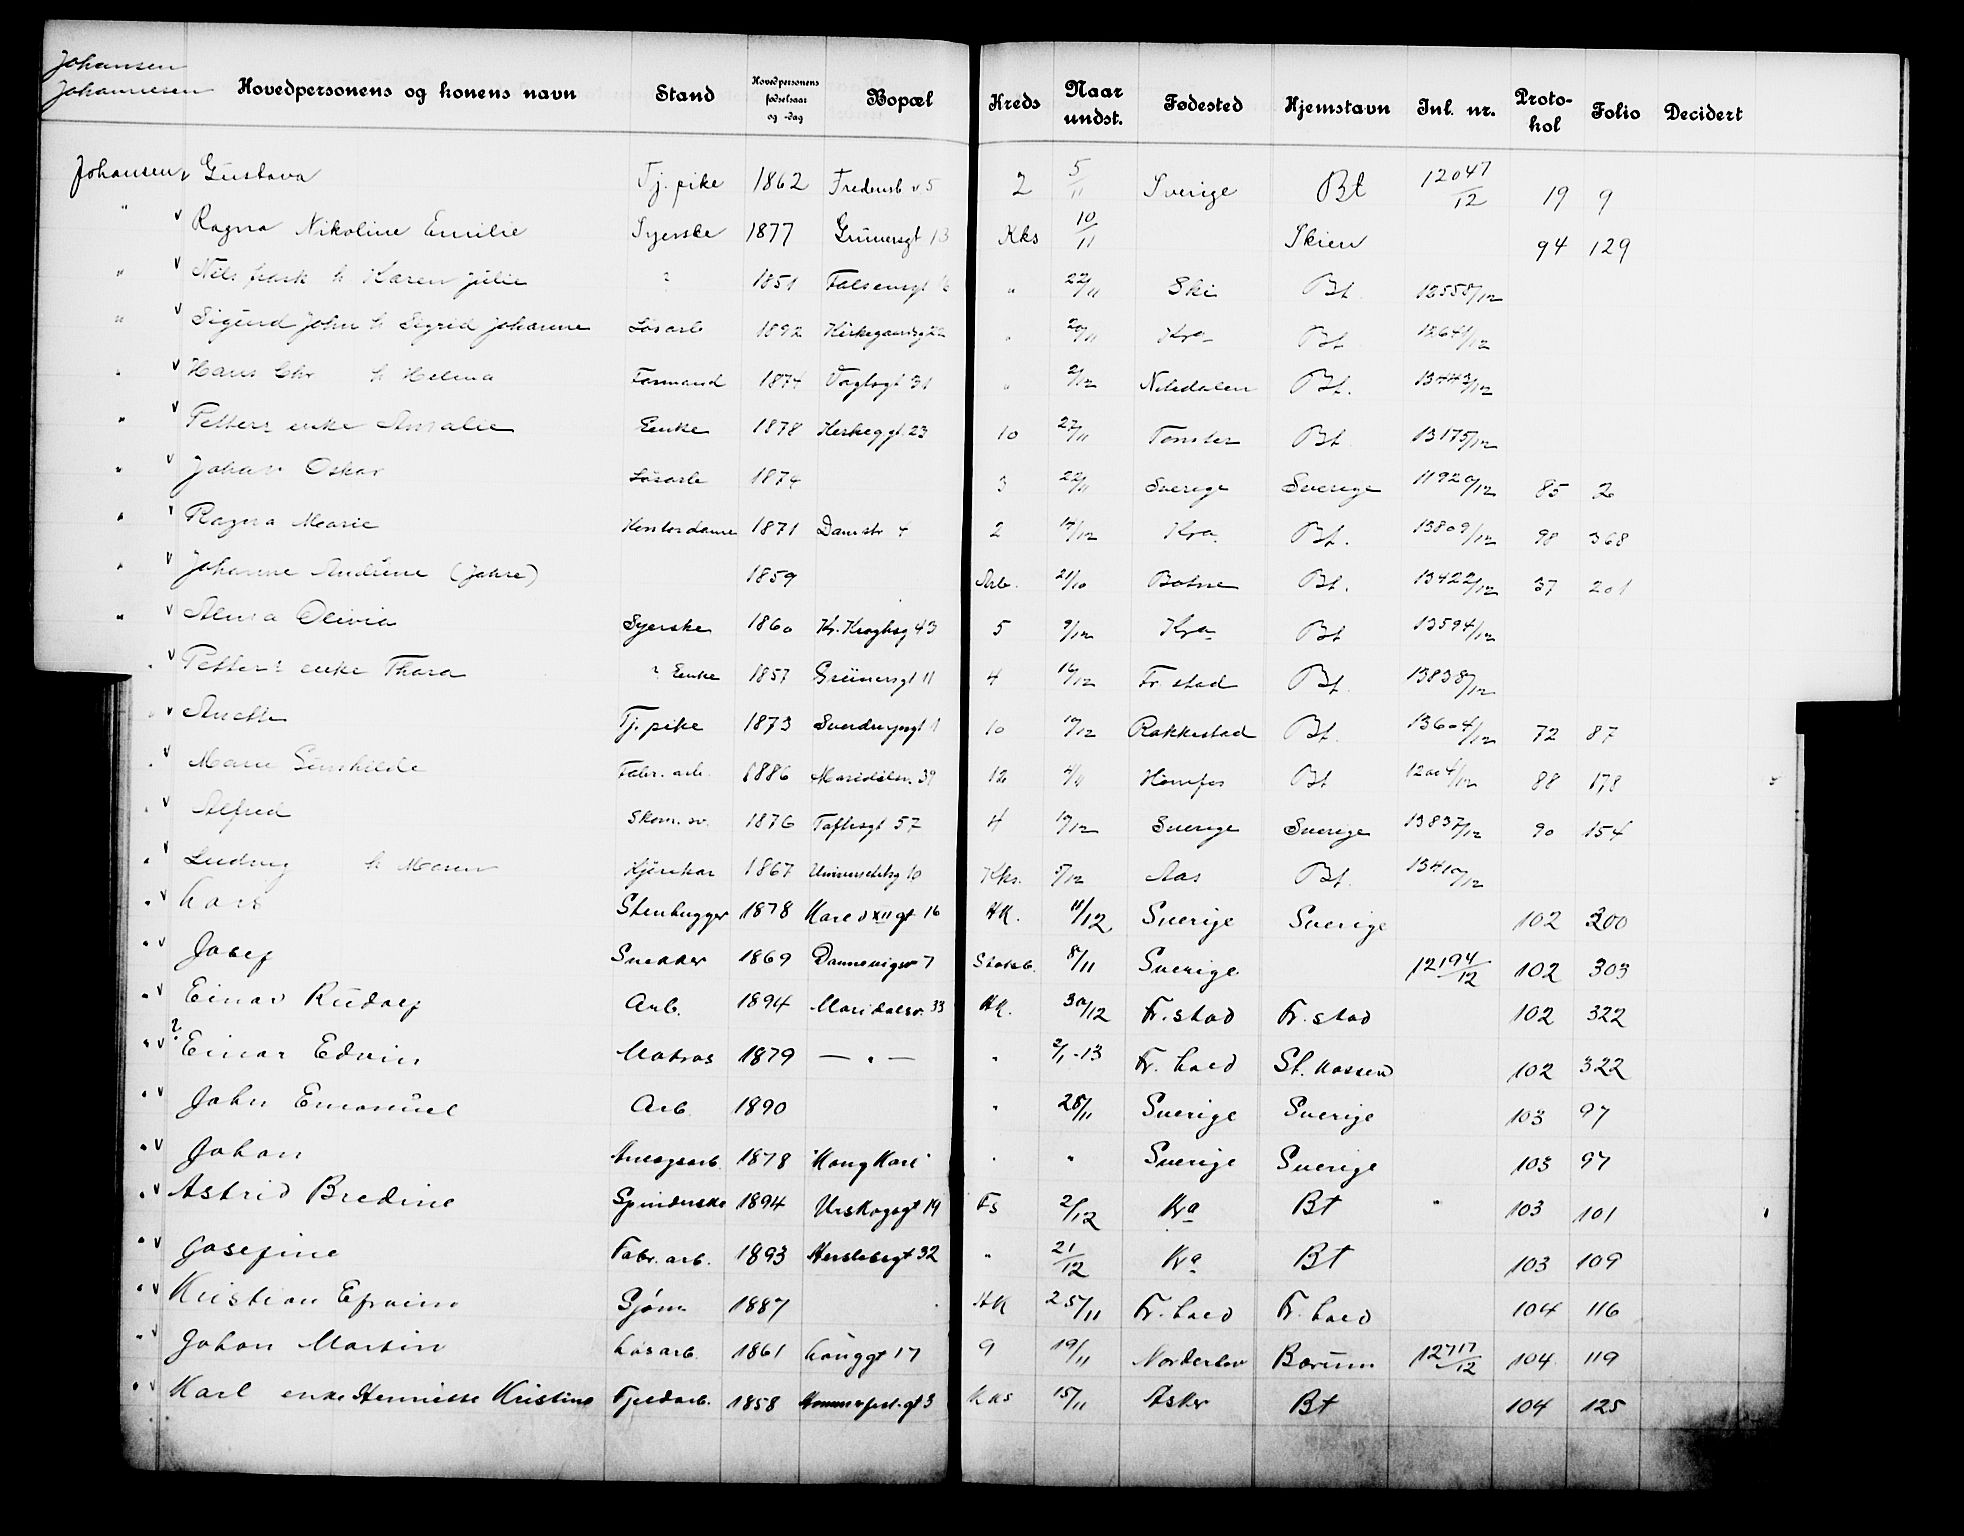 Johansen
Johannesen
Hovedpersonens og konens navn Stand Hovedpersonens fødselsaar og -dag Bopæl Kreds Naar undst. Fødested Hjemstavn Jnl. nr. Proto-kol Folio Decidert
Johansen v Gustava Tj. pike 1862 Fredensb v. 5 2 5/11 Sverige Bt 12047/12 19 9
" v Ragna Nikoline Emilie Syerske 1877 Grünersgt 13 Kks 10/11 Skien 94 129
" v Nils frask h Karen Julie ? 1851 Falsensgt " 22/11 Ski Bt 12558/12
" v Sigurd John h Sigrid Johanne Løsarb 1892 Kirkegaardsg 22 " 20/11 Kra Bt
" v Hans Chr h Helma Formand 1874 Vogtsgt 31 " 2/12 Nitedalen Bt. 13443/12
" v Petters enke Amalie Enke 1878 Herkeggt. 23 10 27/11 Bt 13175/12
" v Johan Oskar Løsarb 1874 3 22/11 Sverige Sverige 11920/12 85 2
" v Ragna Marie Kontordame 1871 Damstr 4 2 17/12 Kra. Bt. 13809/12 98 368
" v Johanne Andrine (Jahre) 1859 Arb. 21/10 Botne Bt. 13422/12 37 201
" v Alma Olivia Syerske 1860 Kr. Kroghsg 43 5 9/12 Kra Bt 13594/12
" v Petters enke Thara ? Enke 1857 Grünersgt 11 4 16/12 Fr stad Bt. 13838/12
" v Anette Tj. pike 1873 Sverdrupsgt 1 10 10/12 Rakkestad Bt. 13604/12 72 87
" v Marie Gunhilde Fabr. arb. 1886 Maridalsv. 39 12 4/11 Hønefos Bt 12004/12 88 178
" v Alfred Skom. sv. 1876 Toftesgt 57 4 17/12 Sverige Sverige 13837/12 90 154
" v Ludvig h Maren Kjørekar 1867 Universitetsg 10 Kks. 5/12 Aas Bt. 13410/12
" v Karl Stenhugger 1878 Karl d XII gt 16 HK. 11/12 Sverige Sverige 102 300
" v Josef Snekker 1869 Dannevigsv 7 Stokb. 8/11 Sverige 12194/12 102 303
" v Einar Rudolf Arb. 1894 Maridalsv. 33 HK. 30/12 Fr. stad Fr. stad 102 322
" v ? Einar Edvin Matros 1879 — " — " 2/1-13 Fr. hald St. Hassen 102 322
" v John Emanuel Arb. 1890 " 28/11 Sverige Sverige 103 97
" v Johan Anlegsarb. 1878 "Kong Karl" " " Sverige Sverige 103 97
" v Astrid Bredine Spinderske 1894 Urskogsgt 19 Fs 2/12 Kra Bt " 103 101
" v Josefine Fabr. arb. 1893 Herslebsgt 32 " 21/12 Kra Bt 103 109
" v Kristian Efraim Sjøm 1887 HK 25/11 Fr. hald Fr. hald 104 116
" v Johan Martin Løsarb. 1861 Långgt 17 9 19/11 Norderhov Bærum 12717/12 104 119
" v Karl enke Henriette Kristine Fjeldarb. 1858 Hammerfest. gt 3 Kks 15/11 Asker Bt 104 125